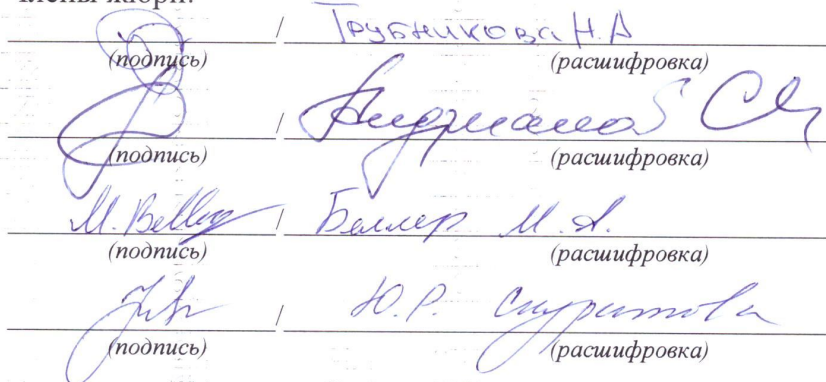 Члены жюри:
/ Трубникова Н.А
(подпись) (расшифровка)
/ Андрианов С
(подпись) (расшифровка)
M. Beller / Беллер М.А.
(подпись) (расшифровка)
/ Ю.Р.
(подпись) (расшифровка)